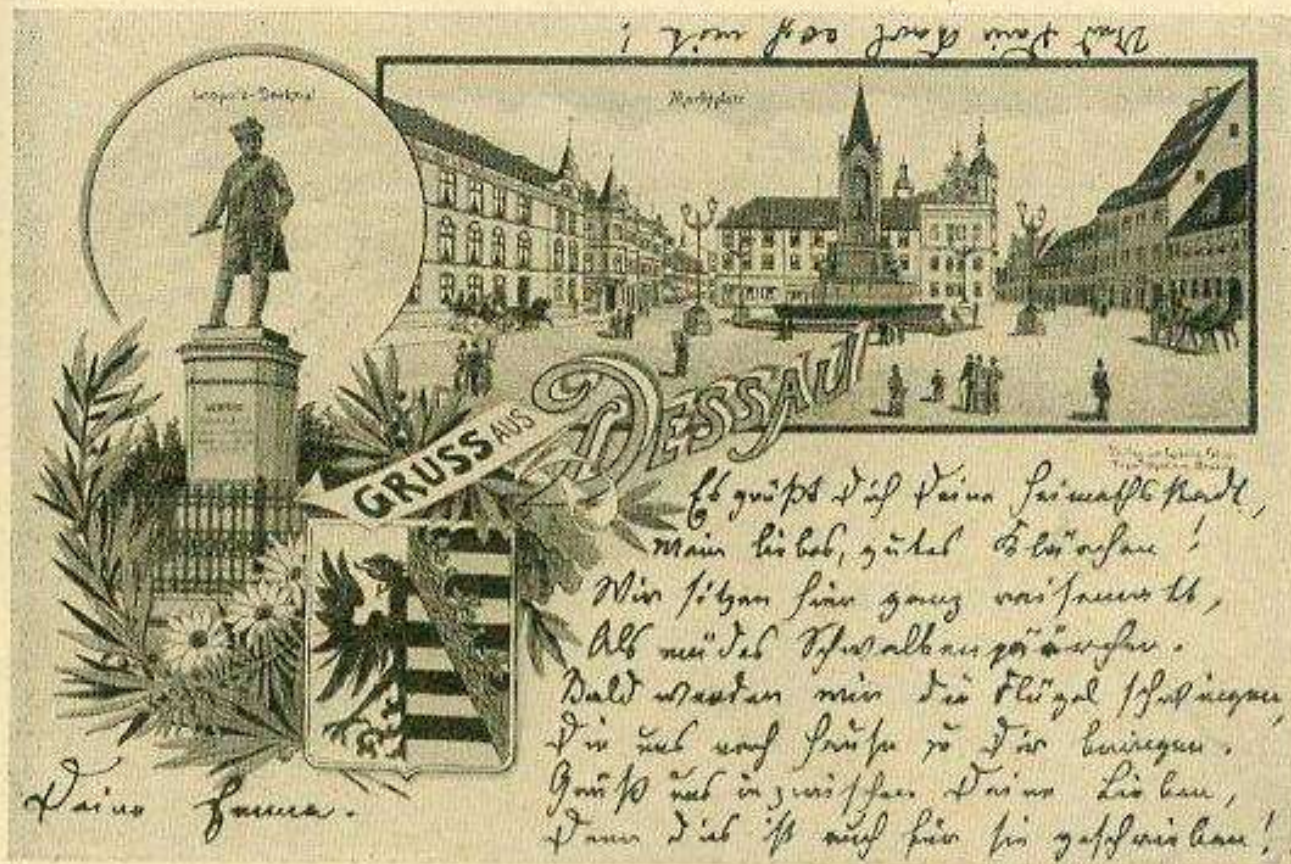 Und Dein Karl mit!
Leopold-Denkmal
Marktplatz
GRUSS AUS DESSAU
Es grüßt Dich Deine Heimathsstadt,
Mein liebes, gutes Klärchen!
Wir sitzen hier ganz reisematt,
Als müdes Schwalbenpäärchen.
Bald werden wir die Flügel schwingen,
Die uns nach Hause zu Dir bringen.
Grüß uns inzwischen Deine Lieben,
Denn dies ist auch für sie geschrieben!
Deine Emma.